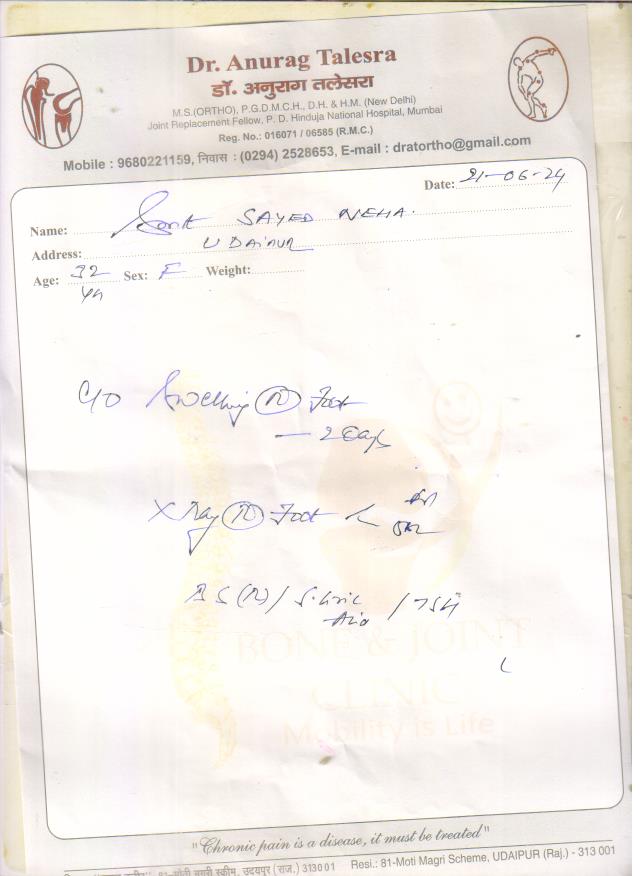 Dr. Anurag Talesra
डॉ. अनुराग तलेसरा
M.S.(ORTHO), P.G.D.M.C.H., D.H. & H.M. (New Delhi)
Joint Replacement Fellow, P. D. Hinduja National Hospital, Mumbai
Reg. No.: 016071 / 06585 (R.M.C.)
Mobile : 9680221159, निवास : (0294) 2528653, E-mail : dratortho@gmail.com
Date: 21-06-24
Name: SAYED NEHA.
Address: UDAIPUR
Age: 32 Sex: F Weight:
C/O Swelling (R) Foot
— 2 days
X Ray (R) Foot <
/ TSH
BONE & JOINT
CLINIC
Mobility is Life
"Chronic pain is a disease, it must be treated"
स्कीम, उदयपुर (राज.) 313001 Resi.: 81-Moti Magri Scheme, UDAIPUR (Raj.) - 313 001